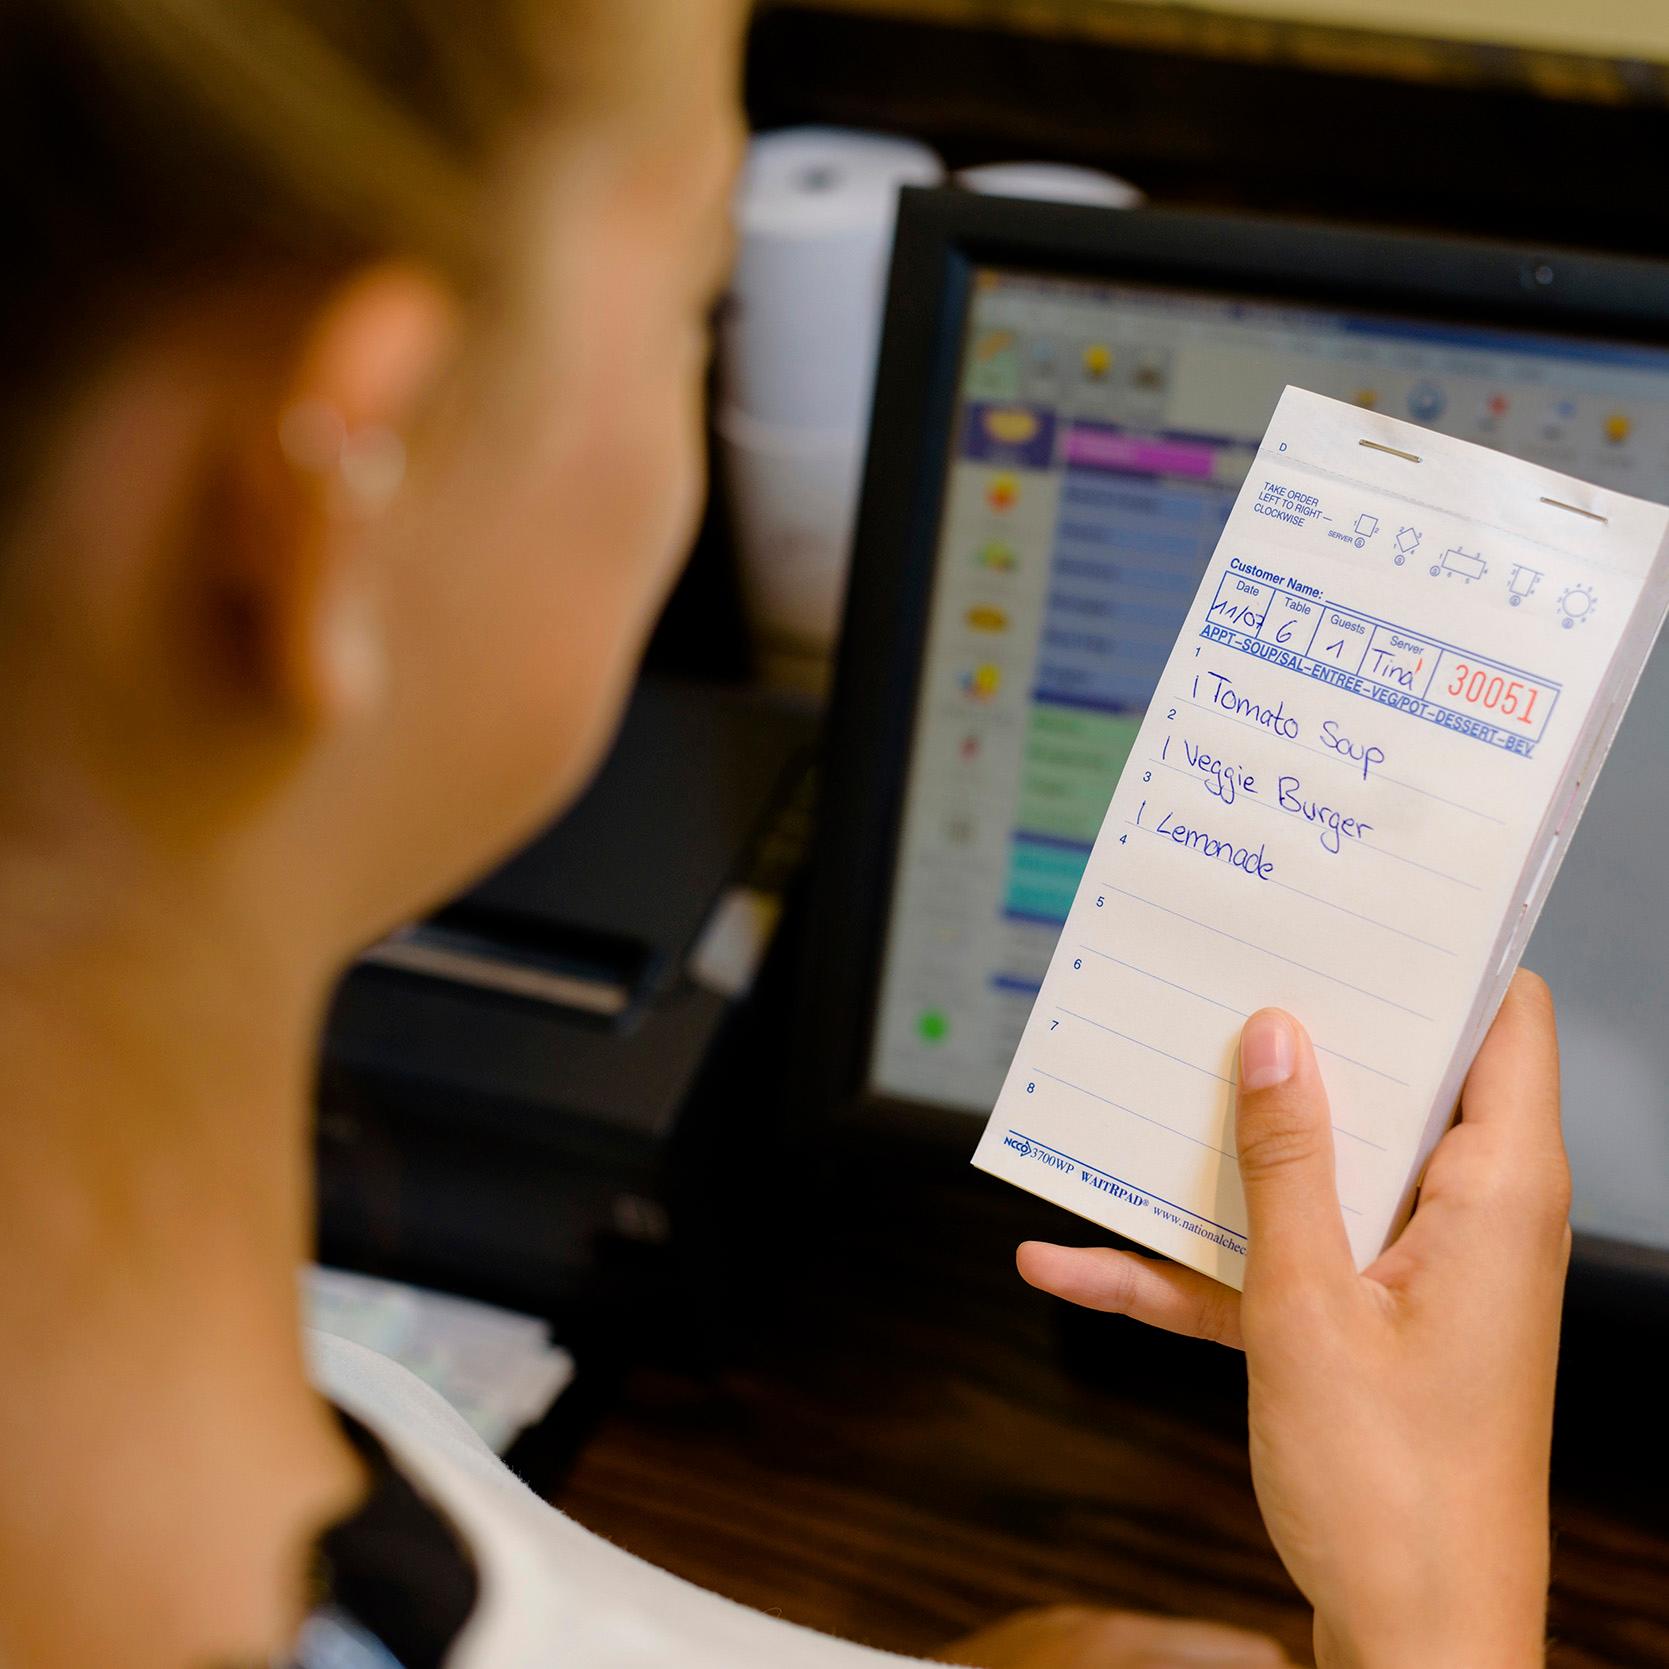 D
TAKE ORDER
LEFT TO RIGHT—
CLOCKWISE
SERVER
Customer Name:
Date Table Guests Server
11/07 6 1 Tina 30051
APPT–SOUP/SAL–ENTREE–VEG/POT–DESSERT–BEV
1
1 Tomato Soup
2
1 Veggie Burger
3
1 Lemonade
4
5
6
7
8
NCCO 3700WP WAITRPAD® www.nationalchec